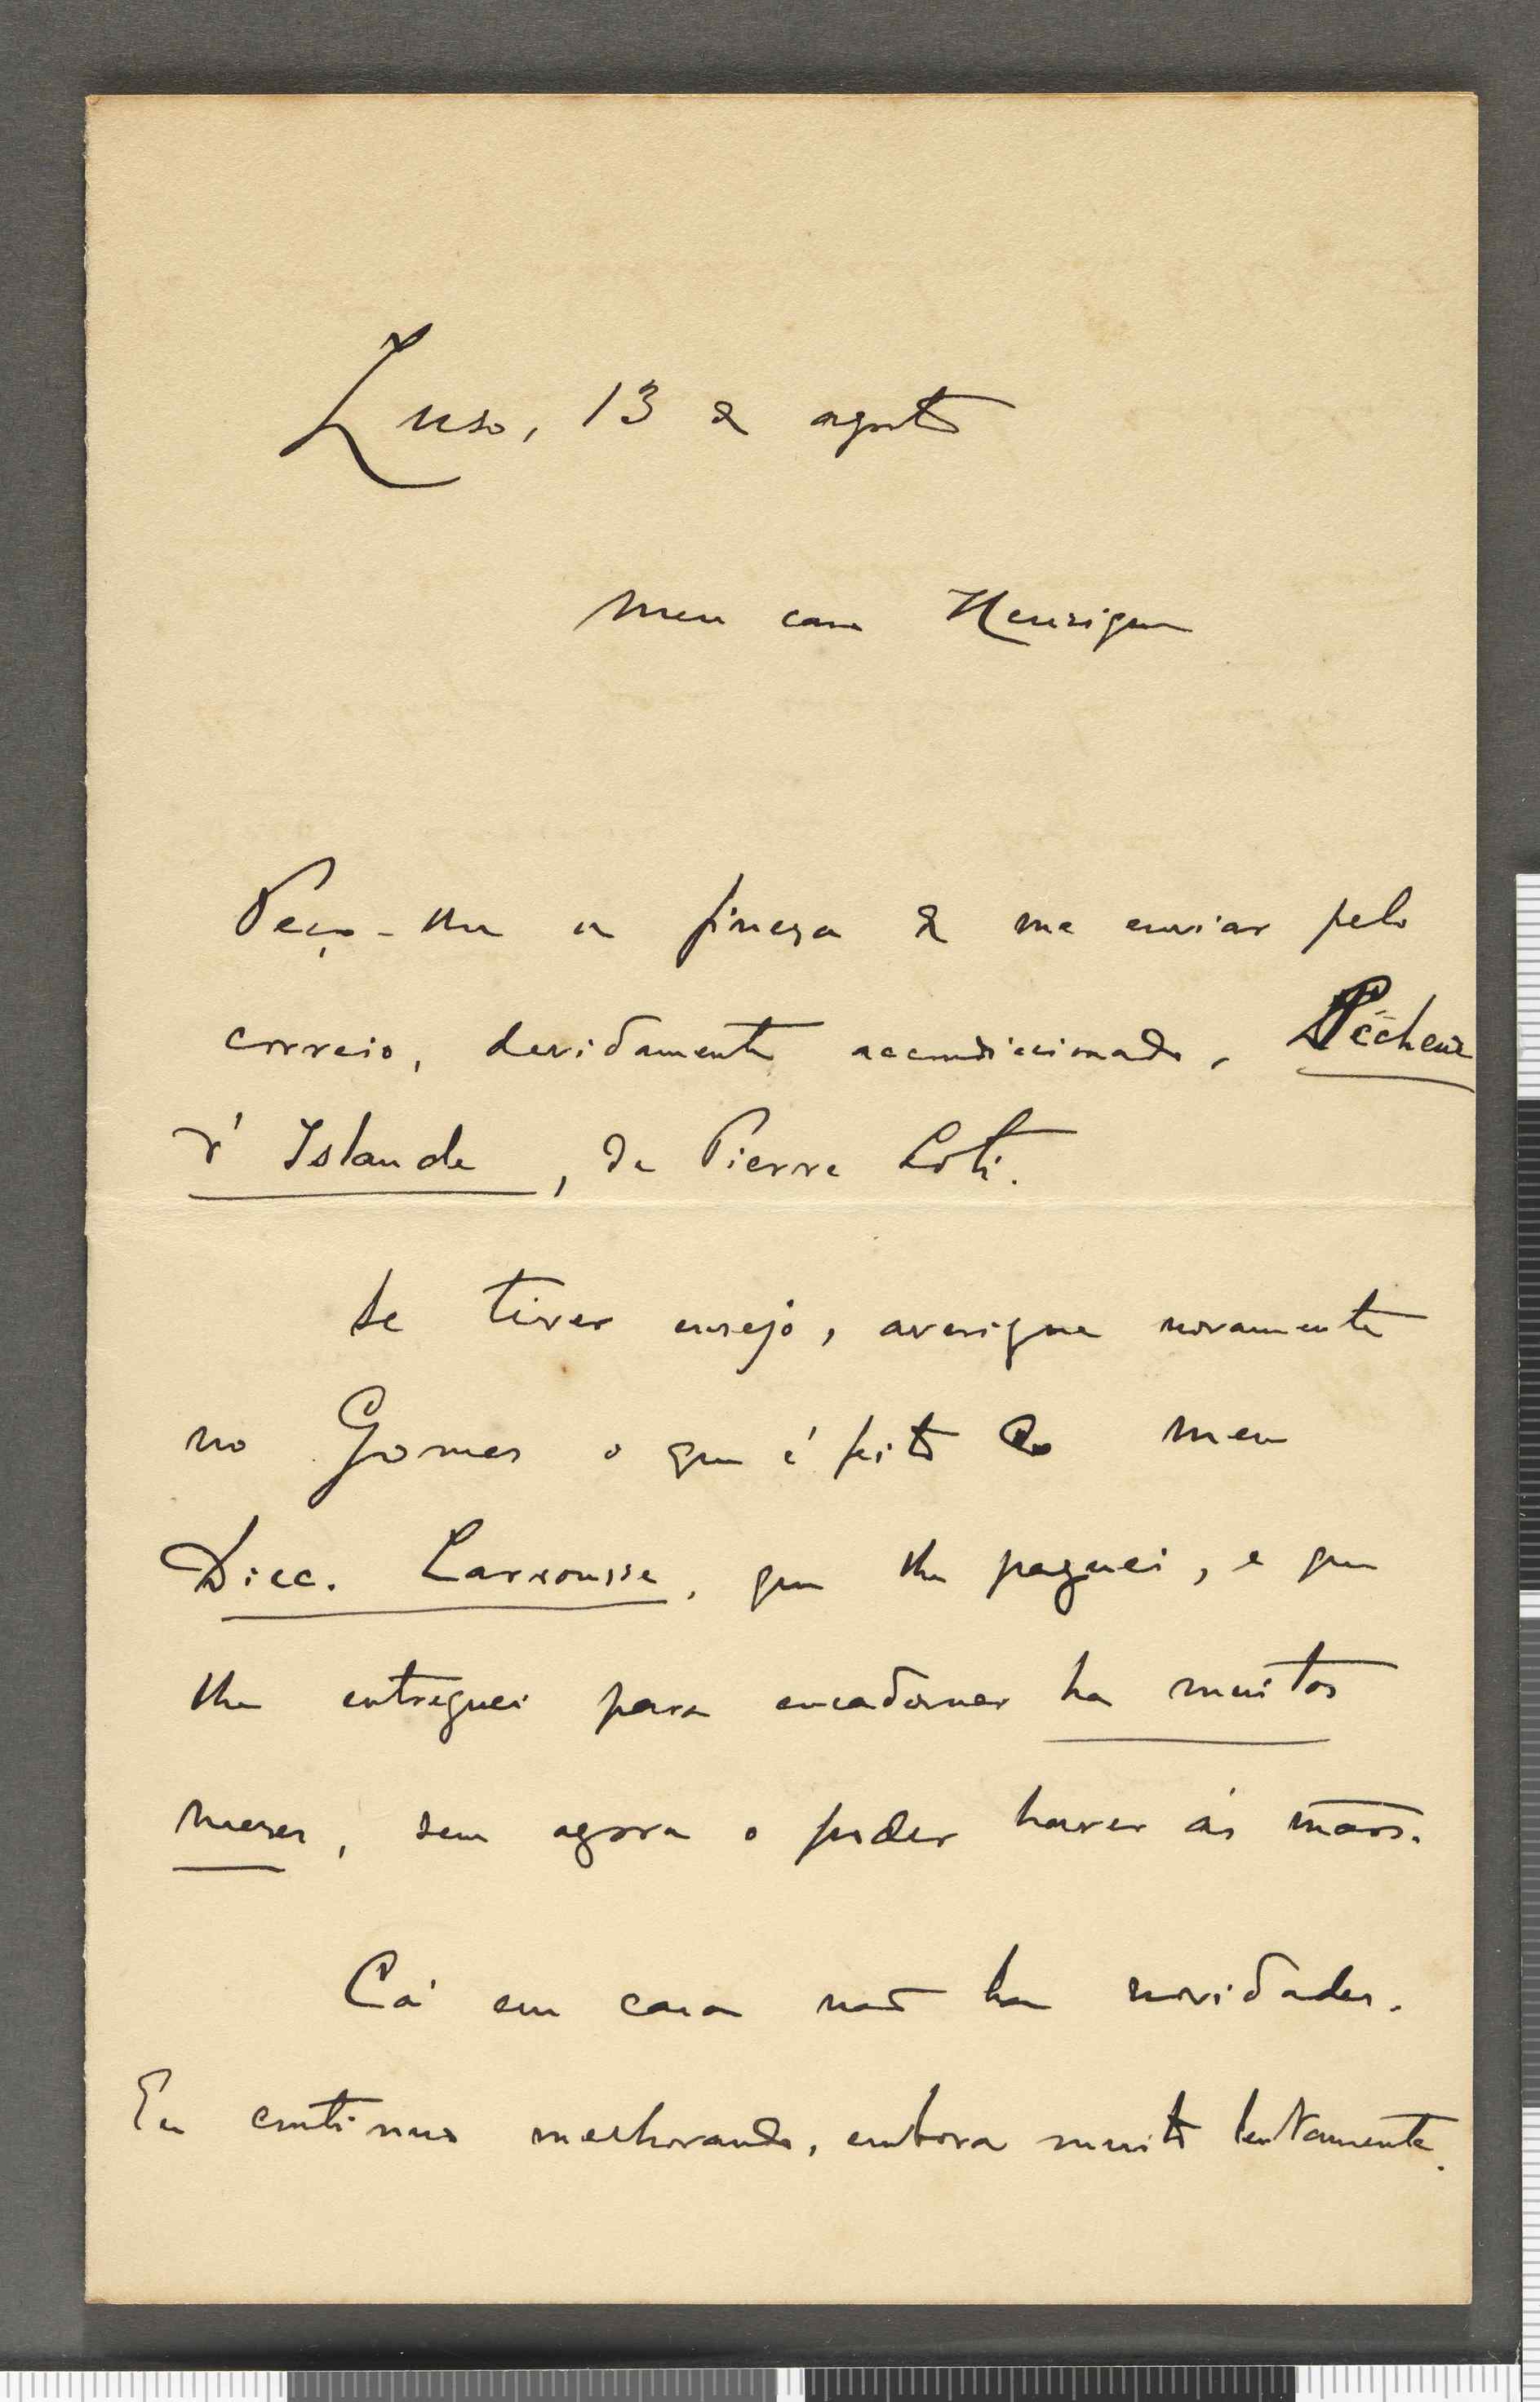 Luso, 13 de agosto
Meu caro Henrique
Peço-lhe a fineza de me enviar pelo
correio, devidamente acondicionado, Pêcheur
d'Islande, de Pierre Loti.
Se tiver ensejo, averigue novamente
no Gomes o que é feito do meu
Dicc. Larrousse, que lhe paguei, e que
lhe entreguei para encadernar ha muitos
mezes, sem agora o poder haver ás mãos.
Cá em casa não ha novidades.
Eu continuo melhorando, embora muito lentamente.